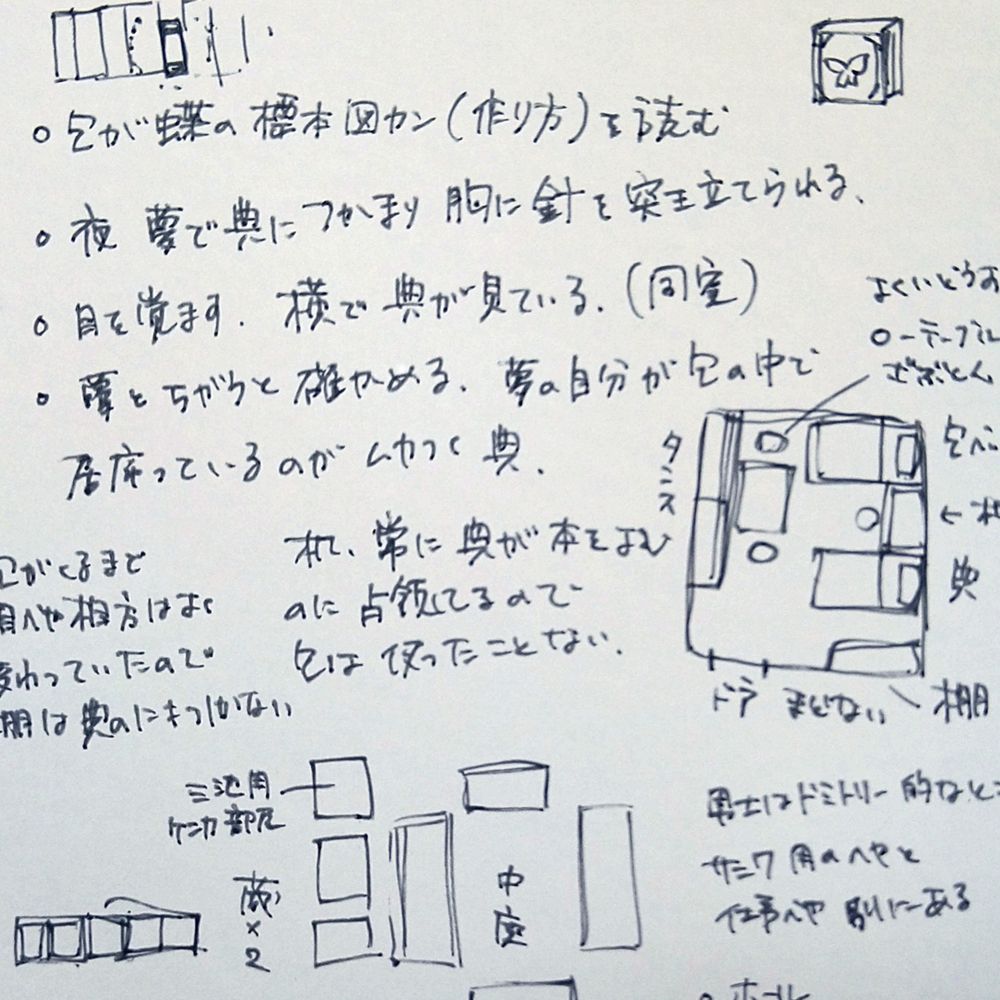 ○ 包が蝶の標本図カン(作り方)を読む
○ 夜 夢で典につかまり 胸に針を突き立てられる、
○ 目を覚ます. 横で典が見ている.(同室)
○ 夢とちがうと確かめる. 夢の自分が包の中で
居座っているのがムカつく典.
よくいどうす
ローテーブル
ざぶとん
タンス
包ベ
←机
典
ドア まどない 棚
包がくるまで
相方はよく
変わっていたので
棚は典のにもつしかない
机、常に典が本をよむ
のに占領してるので
包は使ったことない.
三池用
ケンカ部屋
蔵×2
中庭
男士はドミトリー的なとこ
サニワ用のへやと
仕事べや 別にある
○ ホール